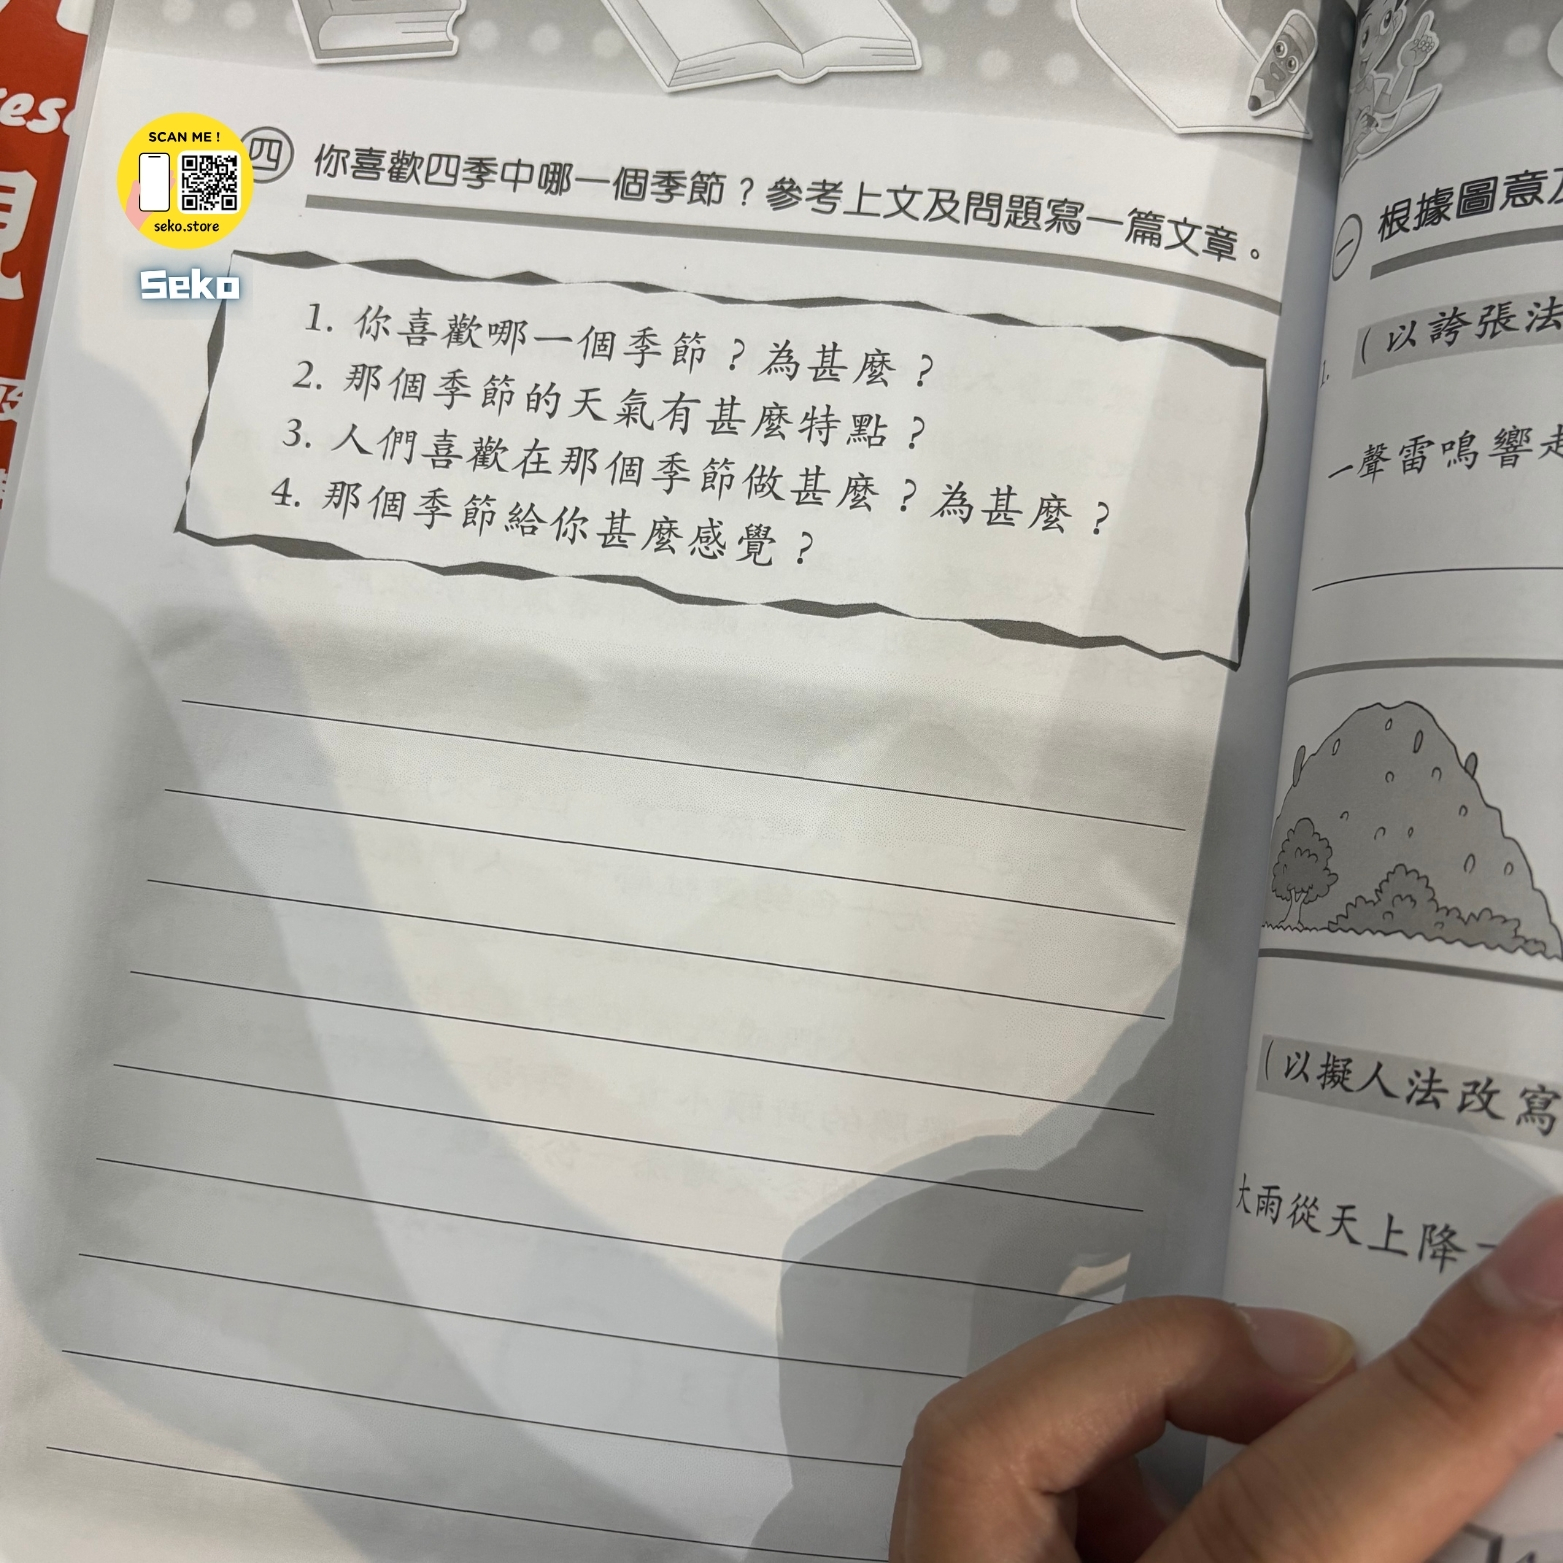 SCAN ME !
seko.store
Seko
四 你喜歡四季中哪一個季節？參考上文及問題寫一篇文章。
1. 你喜歡哪一個季節？為甚麼？
2. 那個季節的天氣有甚麼特點？
3. 人們喜歡在那個季節做甚麼？為甚麼？
4. 那個季節給你甚麼感覺？
一 根據圖意
(以誇張法
一聲雷鳴響
(以擬人法改寫
大雨從天上降一